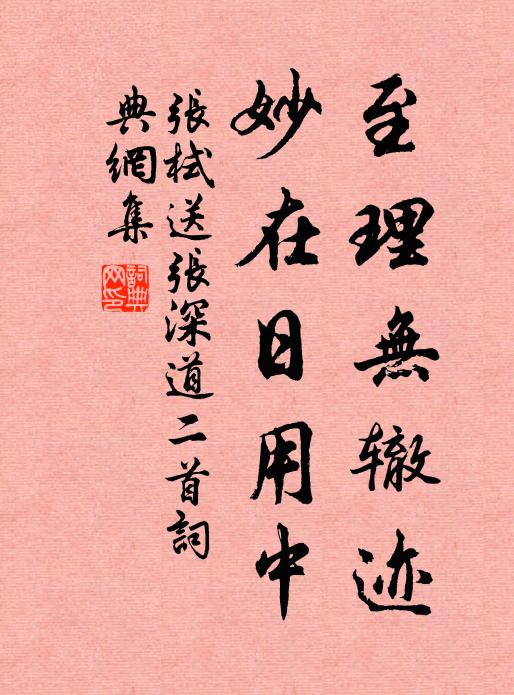 至理無辙迹
妙在日用中
張栻送張深道二首詞
典網集
詞典
网印